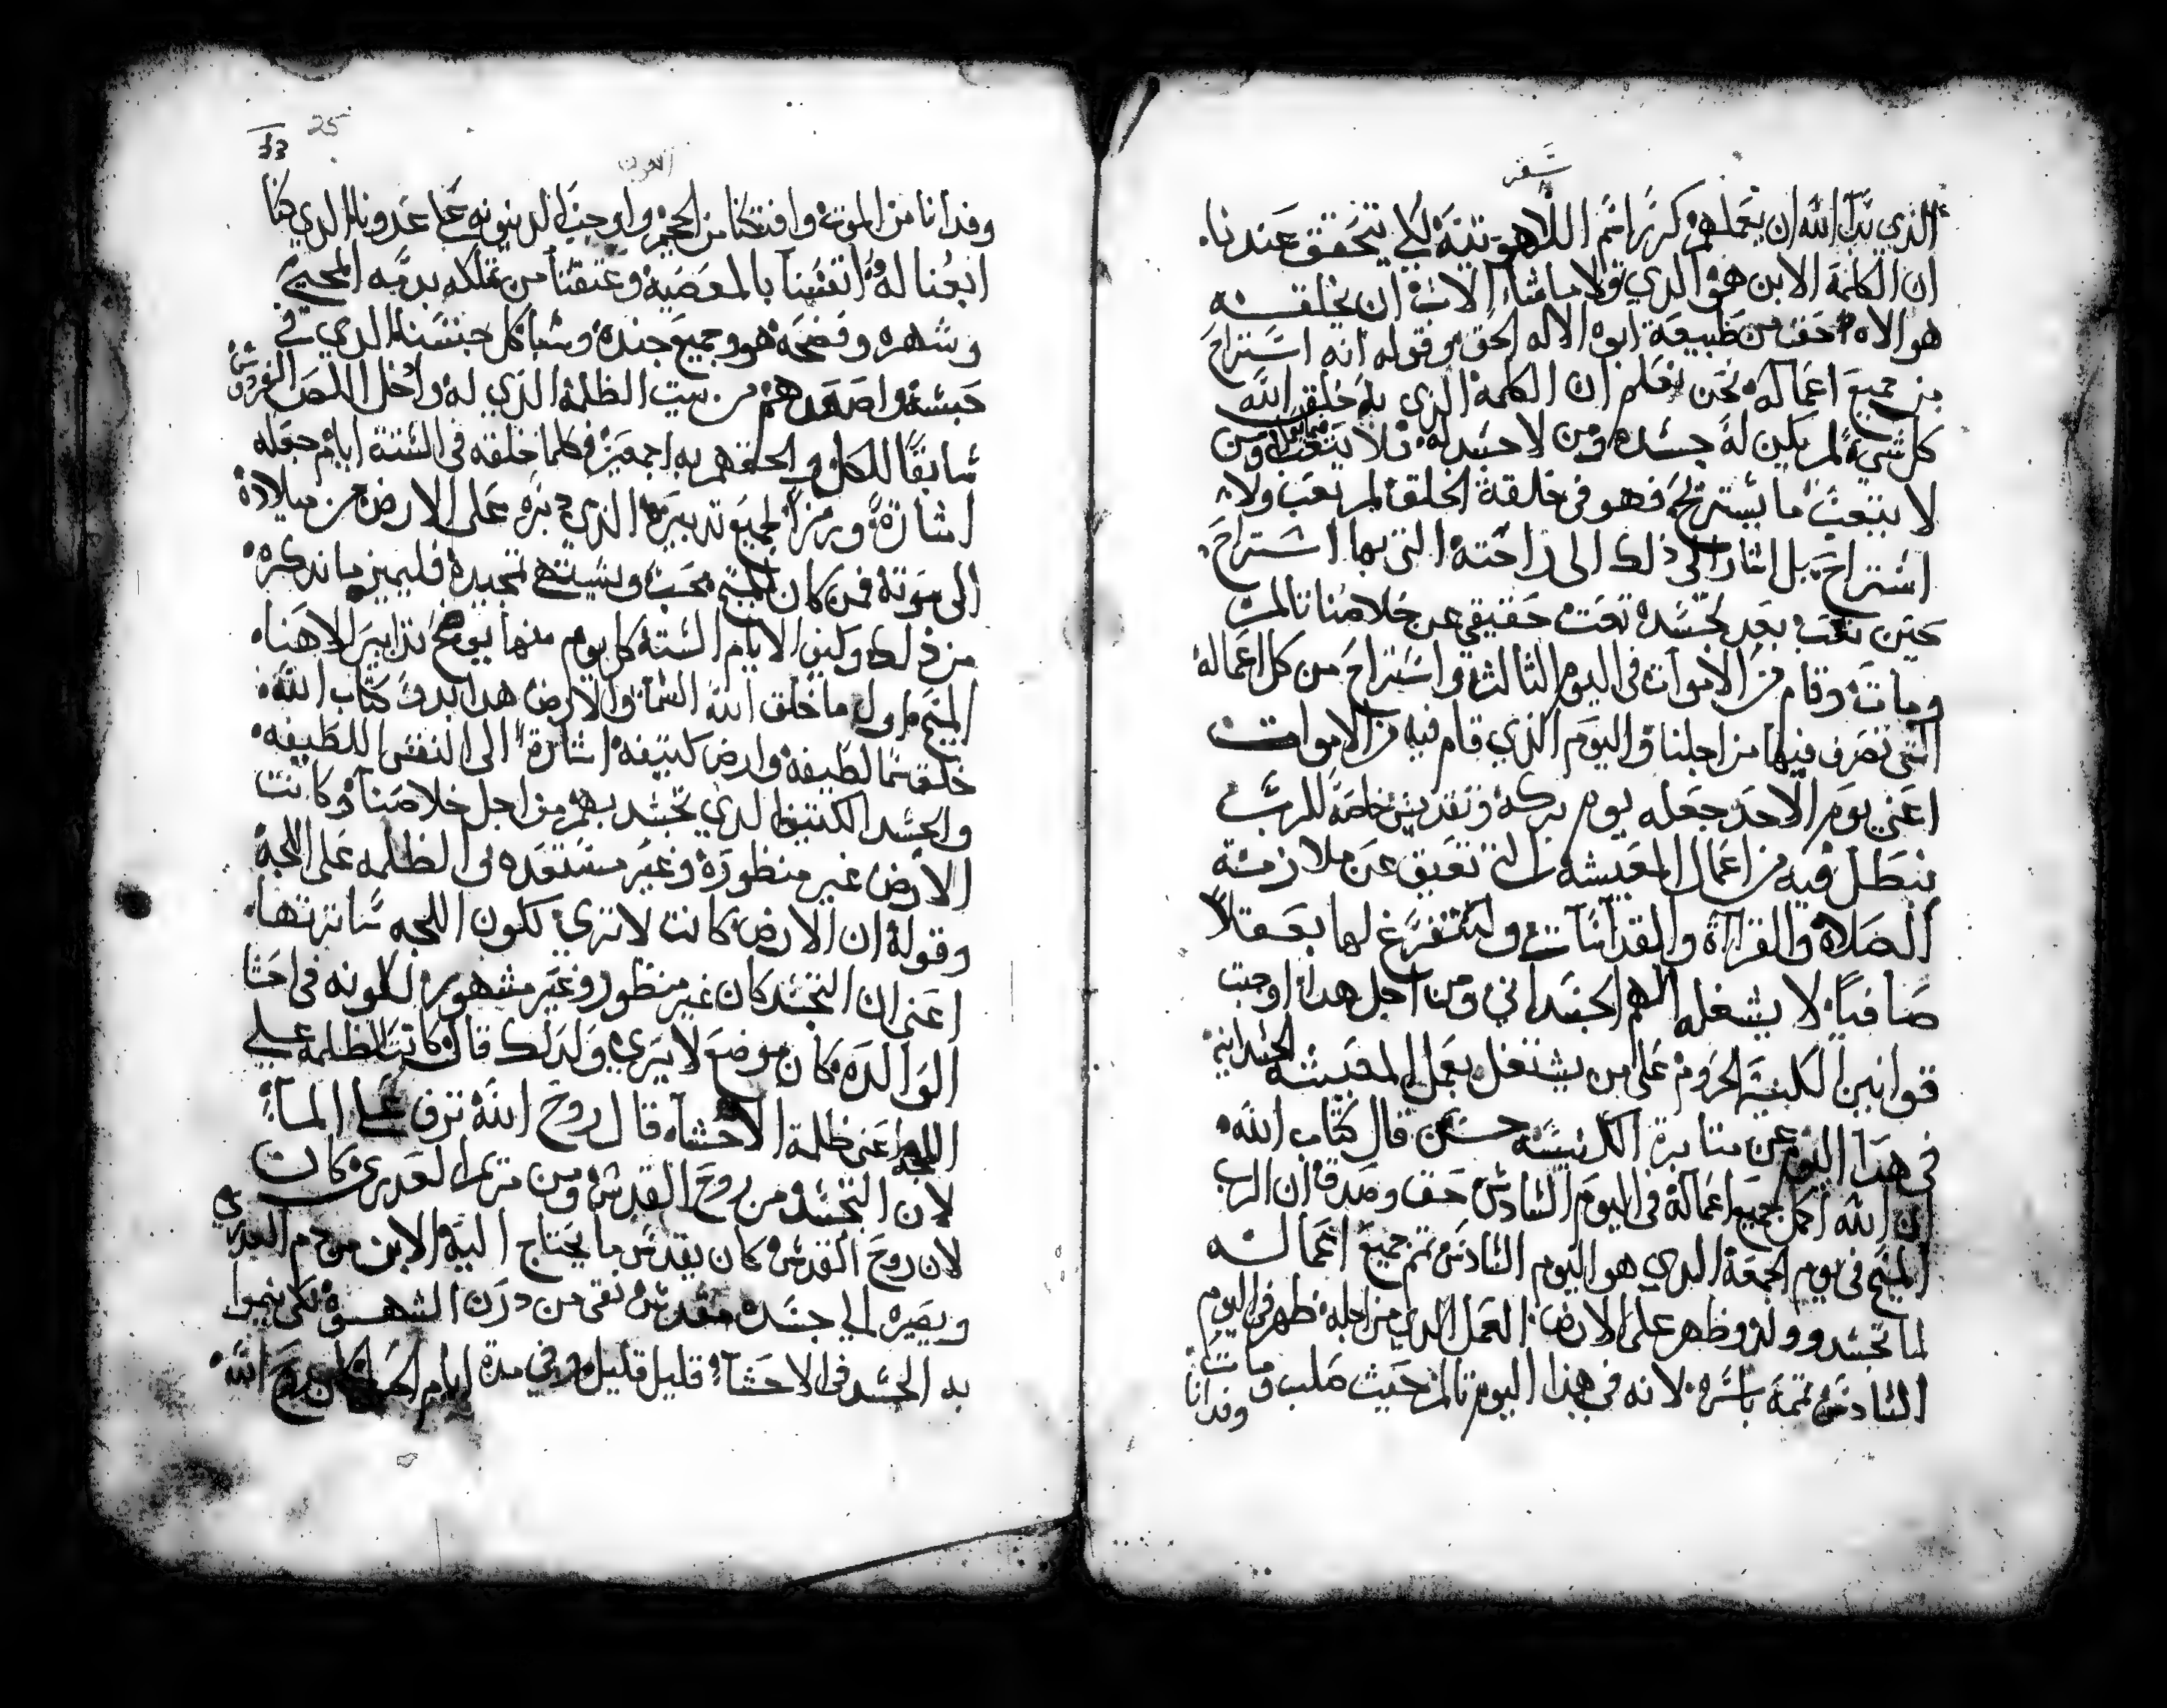 سفر
الذي بدا الله ان يعملهم كرر اسم اللاهوتيه لكي يتحقق عندنا
ان الكلمة الابن هو الذي قولا ما شاء الاب ان يخلقه
هو الاه حق من طبيعة ابوه الاله الحق وقوله انه استراح
من جميع اعماله نحن نعلم ان الكلمة الذي به خلق الله
كل شيء لم يكن له جسد ومن لا جسد له فلا يتعب ومن
لا يتعب ما يستريح فهو في خلقة الخلق لم تعب ولا
استراح بل اشار الى ذلك الى راحته التي بها استراح
حين تعب بعد تجسده تعب حقيقي عن خلاصنا تالم
ومات وقام من الاموات في اليوم الثالث واستراح من كل اعماله
التي تصرف فيها من اجلنا واليوم الذي قام فيه من الاموات
اعني يوم الاحد جعله يوم بركة وتقديس خاصة للرب
نبطل فيه من اعمال المعيشه التي تعيق عن ملازمة
الصلاة والقراة والقداسات ولنتفرغ لها بعقلا
صافيا لا يشغله الهم الجسداني ومن اجل هدا اوجبت
قوانين الكنيسة الحروم على من يشتغل بعمل المعيشه الجسدانيه
في هدا اليوم عن مثابرة الكنيسه حسن قال كتاب الله
ان الله اكمل جميع اعماله في اليوم السادس حق وصدق ان الرب
المسيح في يوم الجمعة الدي هو اليوم السادس تمم جميع اعماله
لما تجسد وولد وظهر على الارض العمل الدي من اجله ظهر في اليوم
السادس تممه باسره لانه في هذا اليوم تالم حيث صلب ومات
وفدانا
25
وفدانا من الموت وافتكنا من الجحيم واوجب الدينونه على عدونا الدي كنا
ابعنا له انفسنا بالمعصية وعتقنا من تملكه بدمه المحيي
وشهره وفضحه هو وجميع جنده وسبا كل جنسنا الدي في
حبسه واصعدهم من بيت الظلمة الذي له وادخل اللص الفردوس
سابقا للكل والحقهم به اجمعين فكلما خلقه في الستة ايام جعله
اشارة ورمزا لجميع تدبيره الذي دبره على الارض من ميلاده
الى موته فمن كان للمسيح محب ويشتهي تمجيده فليميز ما نذكره
من ذلك وليف الايام الستة كل يوم منها يوضح تدابير الاهنا
المسيح اول ما خلق الله السما والارض هدا بدو كتاب الله
خلق سما لطيفه وارض كثيفه اشارة الى النفس اللطيفه
والجسد الكثيف الدي تجسد بهم من اجل خلاصنا وكانت
الارض غير منظوره وغير مستعده والظلمه على اللجة
وقوله ان الارض كانت لا ترى لكون اللجه ساترتها
اعني ان التجسد كان غير منظور وغير مشهور لكونه في احشا
الوالده كان موضع لا يرى ولدلك قال كانت الظلمه على
اللجه اعني ظلمة الاحشا قال روح الله ترف على الما
لان التجسد من روح القدس ومن مريم العدرى كان
لان روح القدس كان يقدس ما يحتاج اليه الابن من دم العدرى
ويصيره الى جسده مقدس نقي من درن الشهوة لكي ينموا
به الجسد في الاحشا قليل قليل وفي مدة ايام الحبل كان روح الله